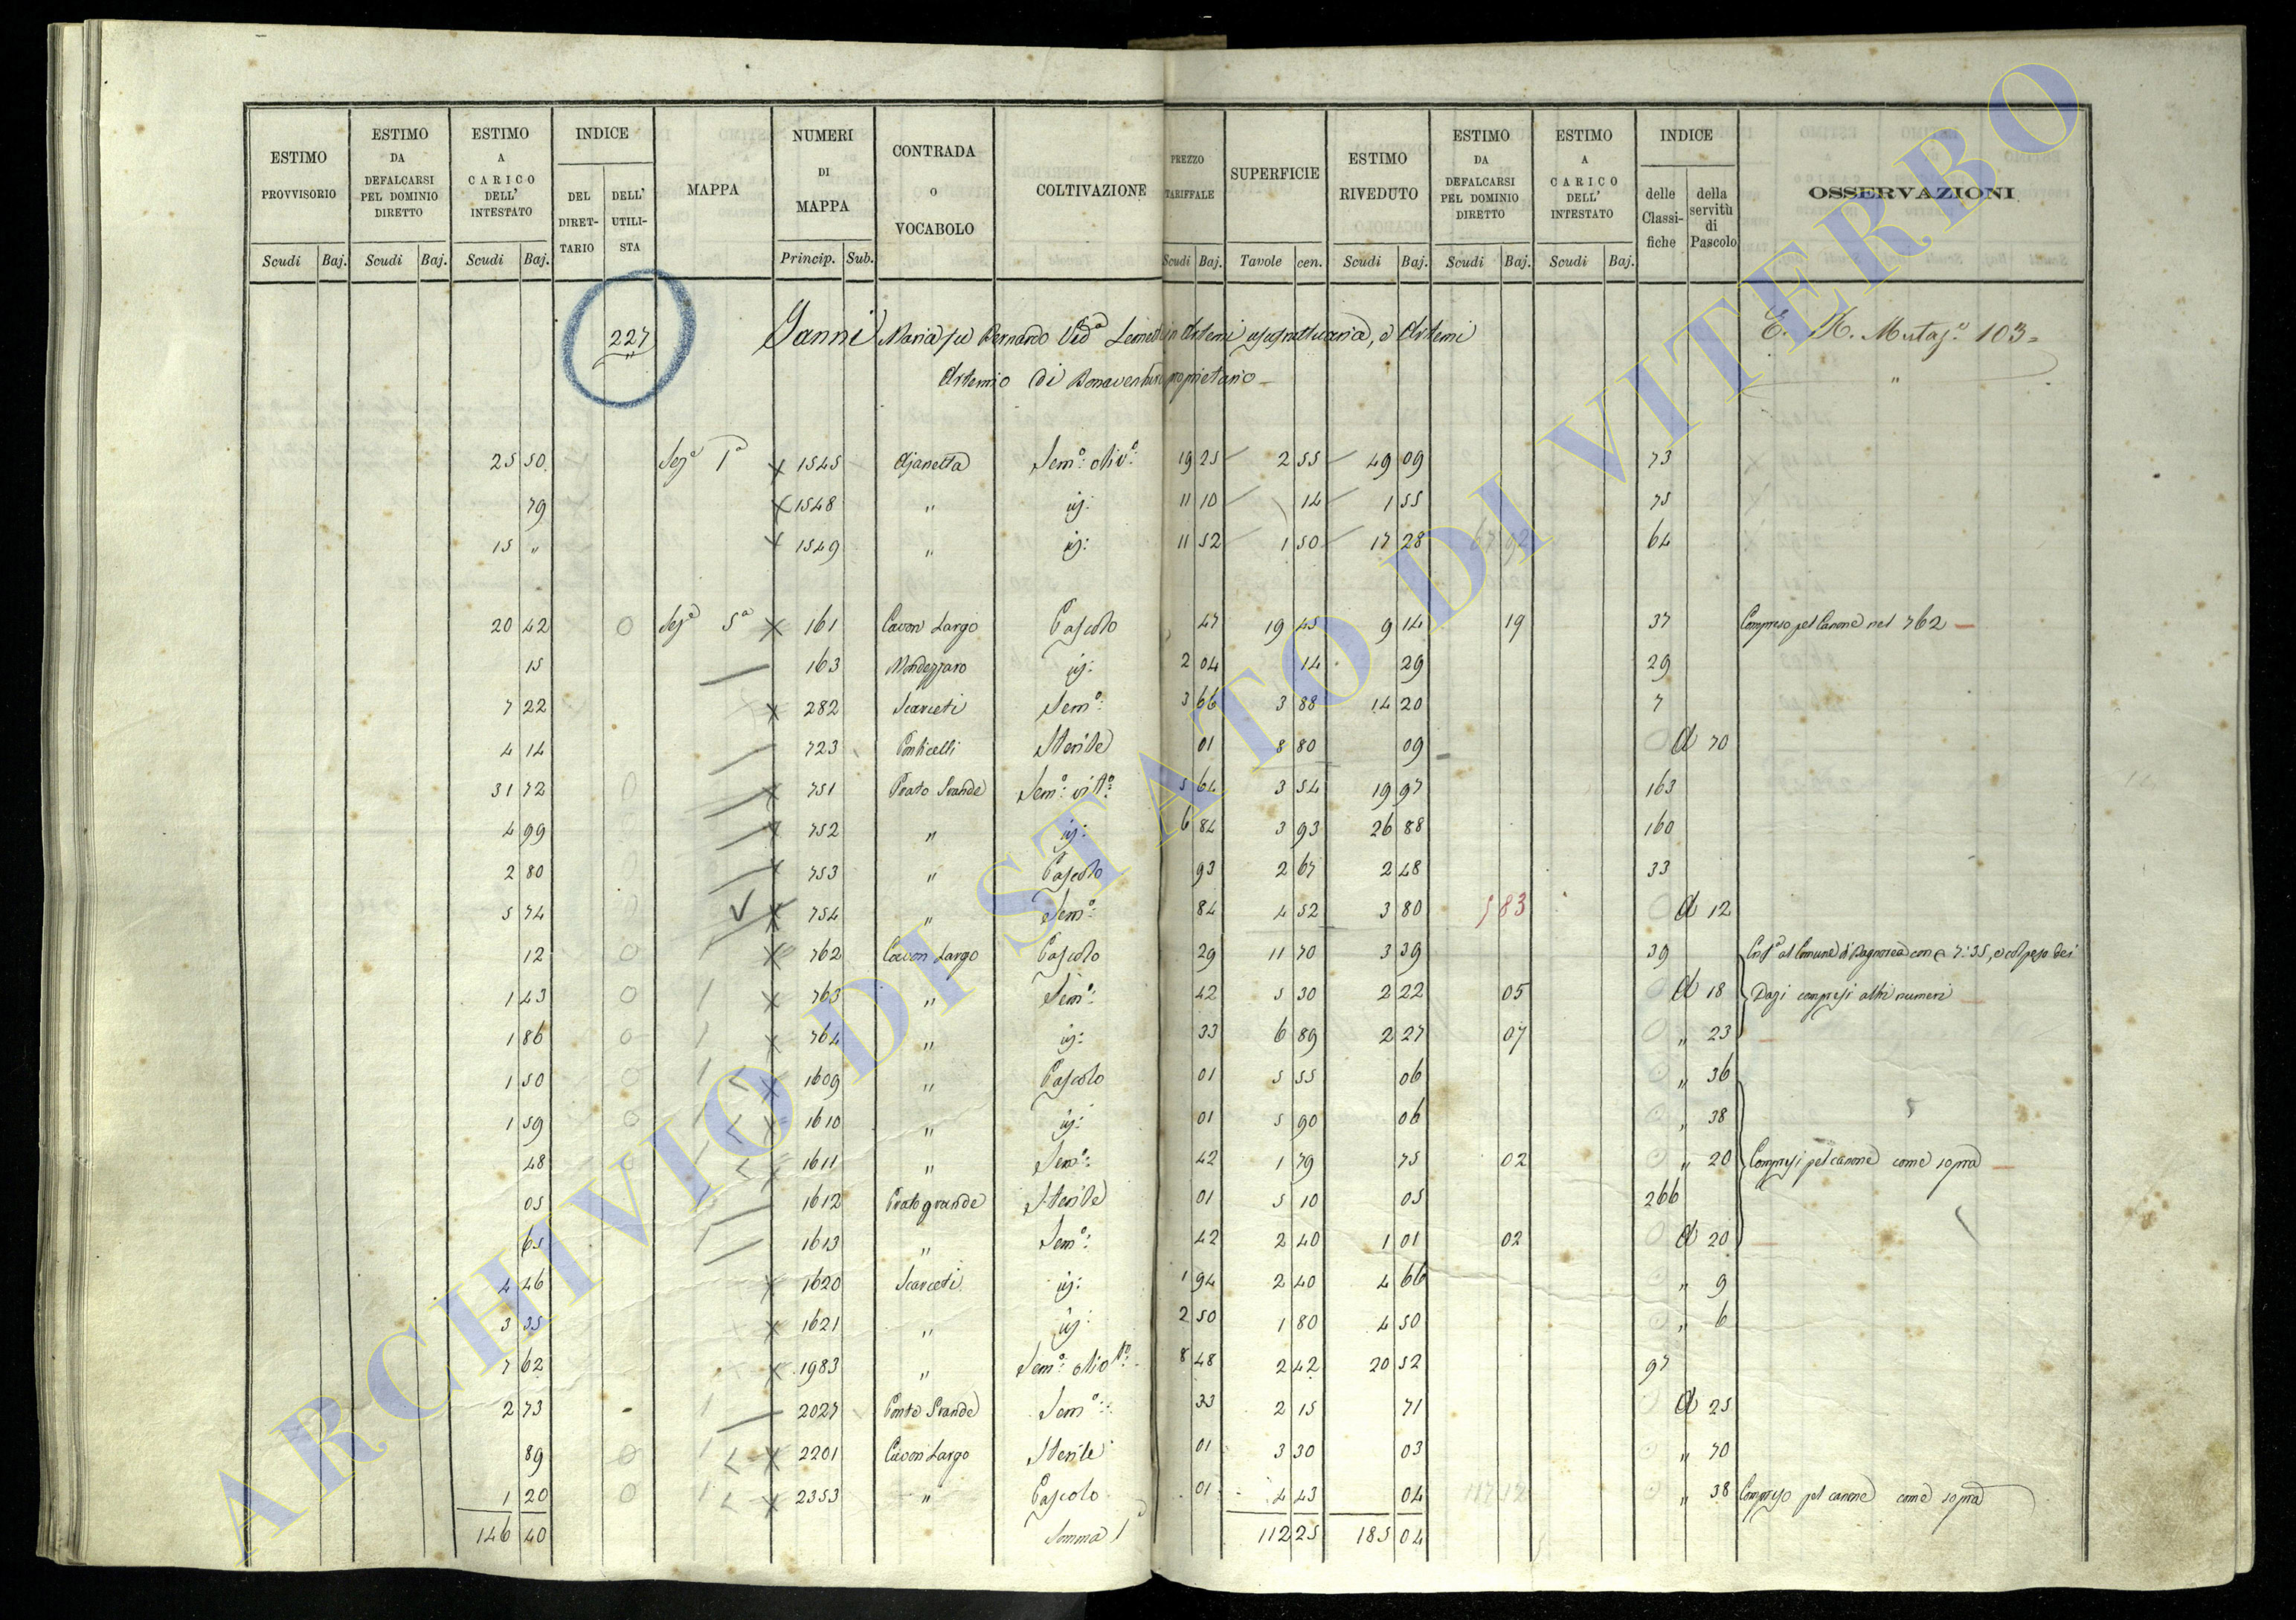 ESTIMO PROVVISORIO Scudi Baj. | ESTIMO DA DEFALCARSI PEL DOMINIO DIRETTO Scudi Baj. | ESTIMO A CARICO DELL' INTESTATO Scudi Baj. | INDICE DEL DIRET-TARIO DELL' UTILI-STA | MAPPA | NUMERI DI MAPPA Princip. Sub. | CONTRADA o VOCABOLO | COLTIVAZIONE | PREZZO TARIFFALE Scudi Baj. | SUPERFICIE Tavole cen. | ESTIMO RIVEDUTO Scudi Baj. | ESTIMO DA DEFALCARSI PEL DOMINIO DIRETTO Scudi Baj. | ESTIMO A CARICO DELL' INTESTATO Scudi Baj. | INDICE delle Classi-fiche della servitù di Pascolo | OSSERVAZIONI
227 Janni Maria fu Bernardo Ved.a in Artemi usufruttuaria, e Artemi E. N. Mutaz.e 103=
Artemio di Bonaventura proprietario
25 50 Sez.e 1a 1545 Sem.o oliv.o 19 25 2 55 49 09 73
79 1548 " id: 11 10 14 1 55 75
15 " 1549 " id: 11 52 1 50 17 28 67 92 64
20 42 0 Sez.e 5a 161 Cavon Largo Pascolo 47 19 45 9 14 19 37 Compreso pel Canone nel 762
15 163 id: 2 04 14 29 29
7 22 282 Scarceti Sem.o 3 66 3 88 14 20 7
4 14 723 Ponticelli Sterile 01 8 80 09 A 70
31 72 0 751 Prato Grande Sem.o vit.o 5 64 3 54 19 97 163
4 99 752 " id: 6 84 3 93 26 88 160
2 80 753 " Pascolo 93 2 67 2 48 33
5 74 754 " Sem.o 84 4 52 3 80 5 83 A 12
12 0 762 Cavon Largo Pascolo 29 11 70 3 39 39 al Comune di Bagnorea con 7:35, e col peso dei
1 43 0 763 " Sem.o 42 5 30 2 22 05 A 18 Dazi compresi altri numeri
1 86 0 764 " id: 33 6 89 2 27 07 " 23
1 50 0 1609 " Pascolo 01 5 55 06 " 36
1 59 0 1610 " id: 01 5 90 06 " 38
48 0 1611 " Sem.o 42 1 79 75 02 " 20 Compresi pel canone come sopra
05 1612 Prato grande Sterile 01 5 10 05 266
65 1613 " Sem.o 42 2 40 1 01 02 A 20
4 46 1620 Scarceti id: 1 94 2 40 4 66 " 9
3 35 1621 " id: 2 50 1 80 4 50 " 6
7 62 1983 " Sem.o olivt.o 8 48 2 42 20 52 97
2 73 2027 Ponte Grande Sem.o 33 2 15 71 A 25
89 0 2201 Cavon Largo Sterile 01 3 30 03 " 70
1 20 0 2353 " Pascolo 01 4 43 04 117 12 " 38 Compreso pel canone come sopra
146 40 Somma 1a 112 25 185 04
ARCHIVIO DI STATO DI VITERBO